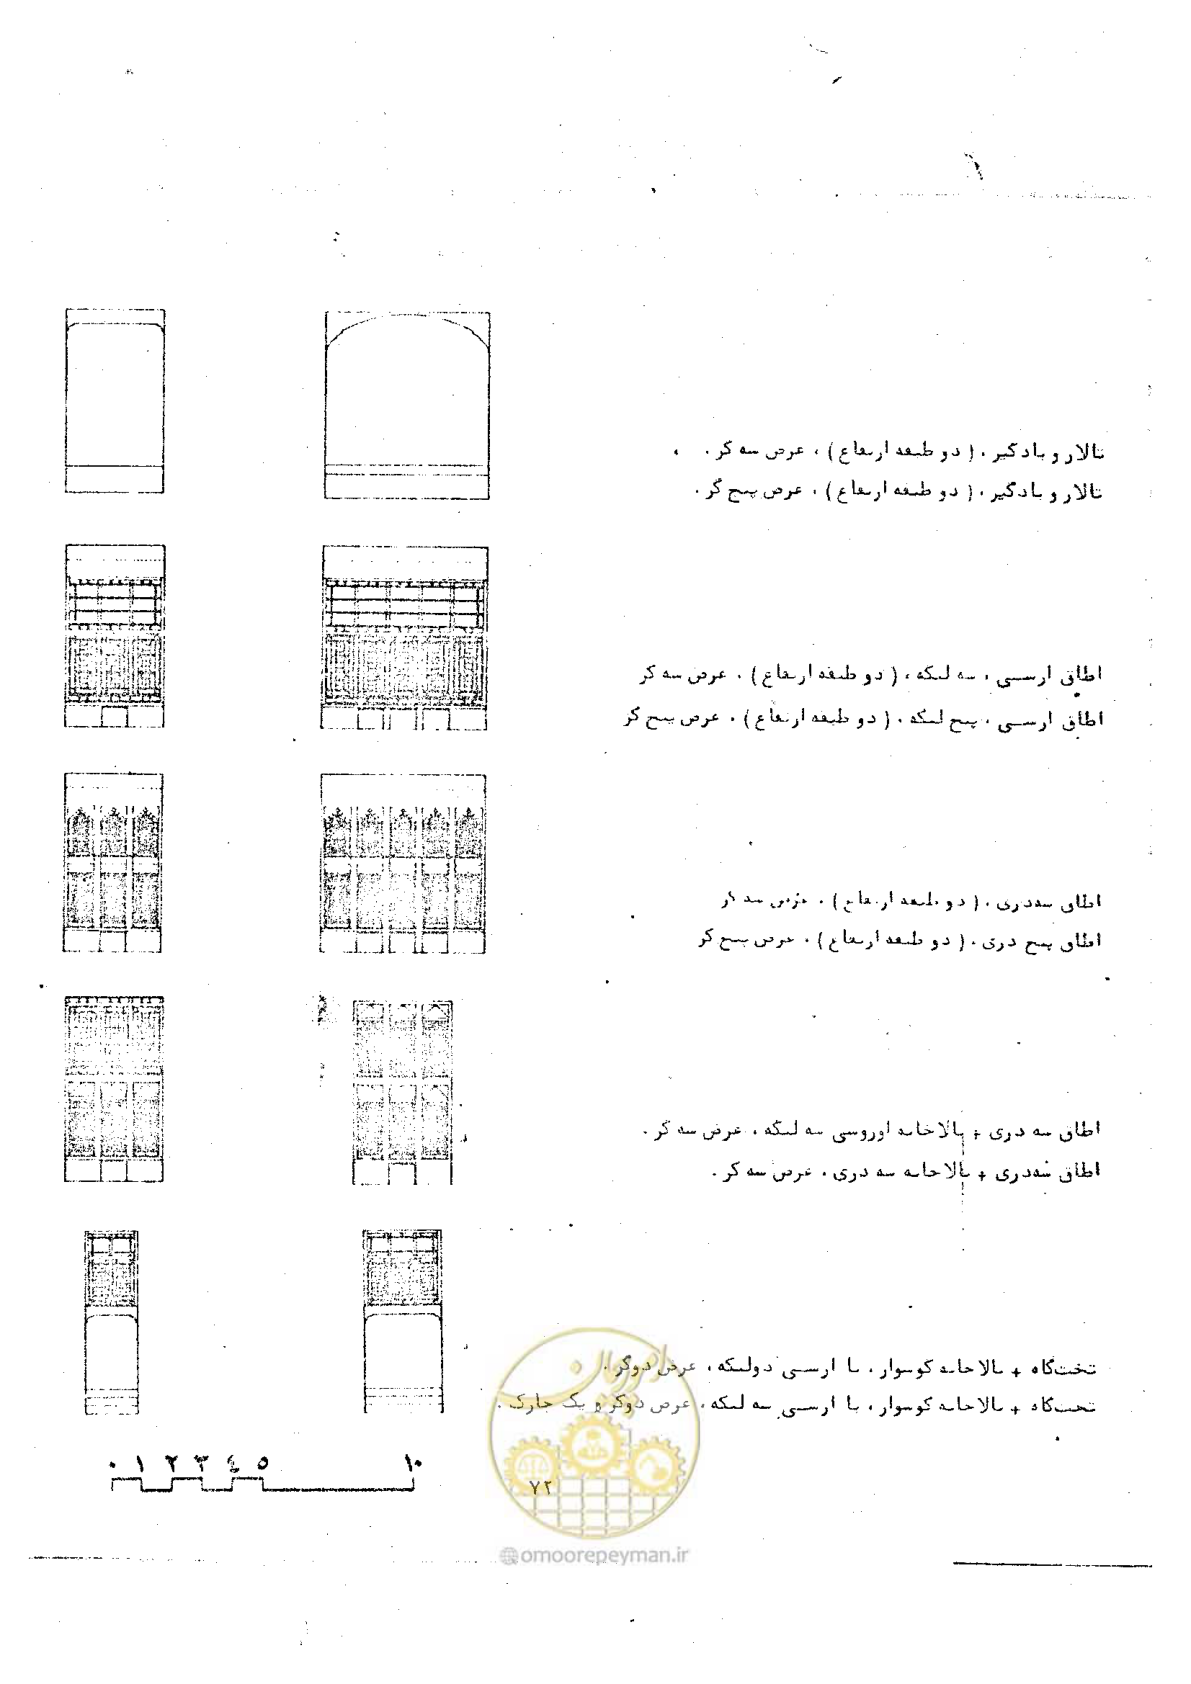 تالار و بادگیر ، ( دو طبقه ارتفاع ) ، عرض سه گز .
تالار و بادگیر ، ( دو طبقه ارتفاع ) ، عرض پنج گز .
اطاق ارسی ، سه لنگه ، ( دو طبقه ارتفاع ) ، عرض سه گز
اطاق ارسی ، پنج لنگه ، ( دو طبقه ارتفاع ) ، عرض پنج گز
اطاق سه‌دری ، ( دو طبقه ارتفاع ) ، عرض سه گز
اطاق پنج دری ، ( دو طبقه ارتفاع ) ، عرض پنج گز
اطاق سه دری + بالاخانه اوروسی سه لنگه ، عرض سه گز .
اطاق سه‌دری + بالاخانه سه دری ، عرض سه گز .
تختگاه + بالاخانه گوشوار ، با ارسی دولنگه ، عرض دوگز .
تختگاه + بالاخانه گوشوار ، با ارسی سه لنگه ، عرض دوگز و یک چارک .
۰ ۱ ۲ ۳ ٤ ۵ ۱۰
۷۲
امور پیمان
@omoorepeyman.ir